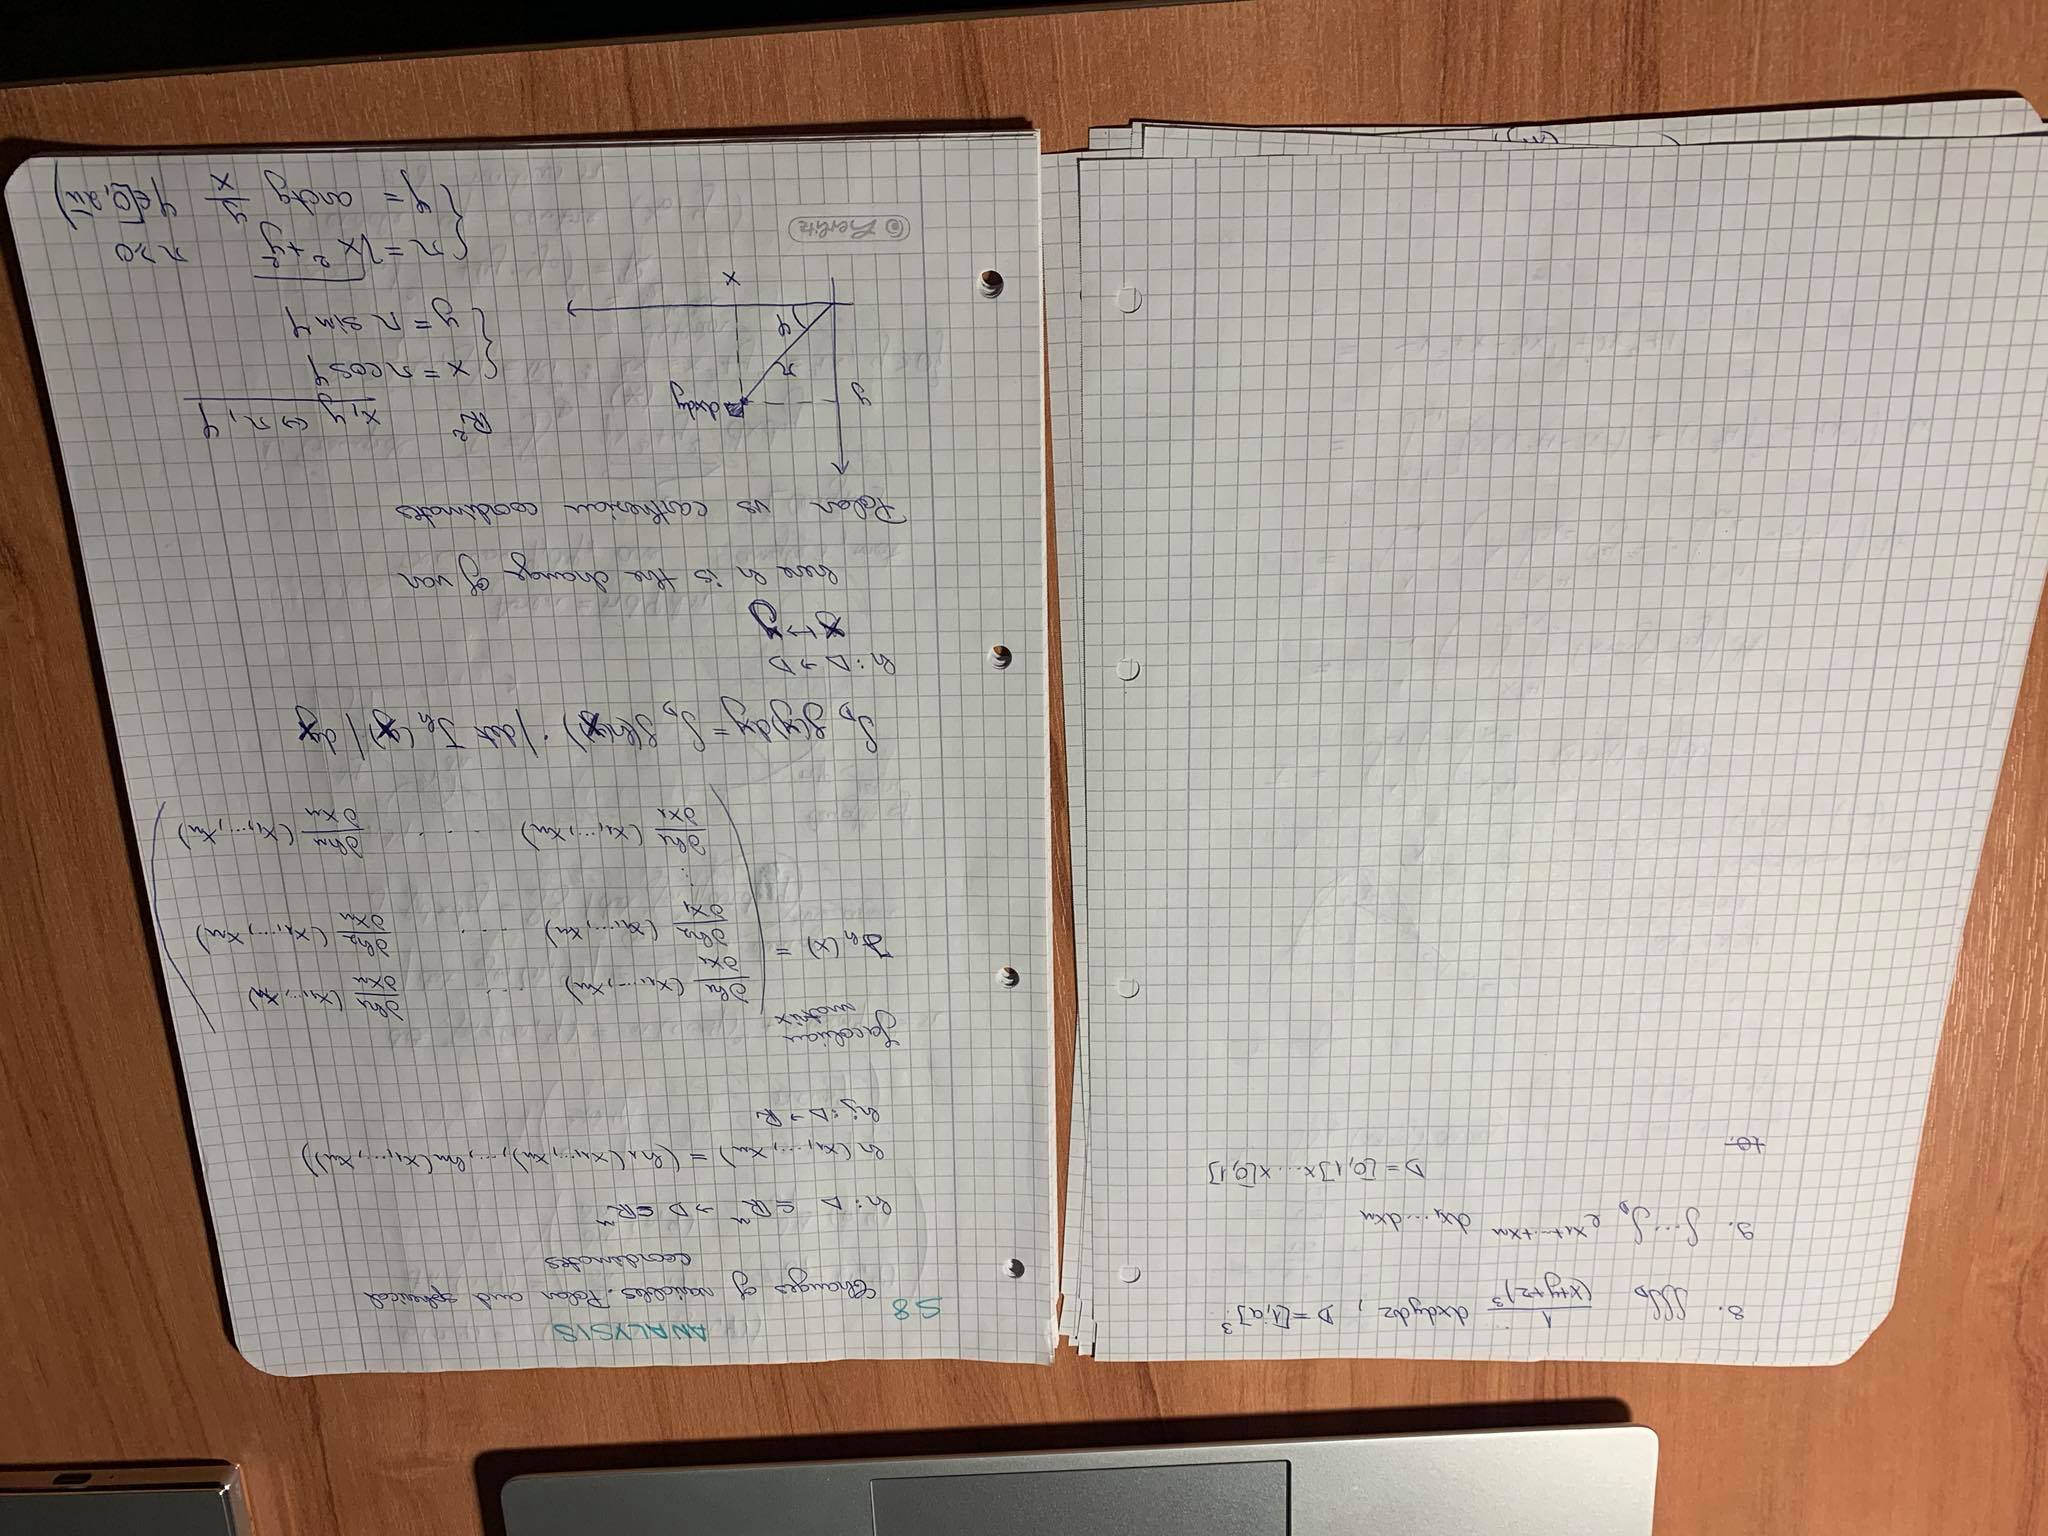 8. ∭_D 1/(x+y+z)^3 dxdydz, D=[1,a]^3
9. ∫...∫_D e^{x1+...+xn} dx1...dxn
D=[0,1]x...x[0,1]
10.
ANALYSIS
S8
Changes of variables. Polar and spherical
coordinates
h: D ⊆ ℝ^n → D ⊆ ℝ^n
h(x1,...,xn) = (h1(x1,...,xn),...,hn(x1,...,xn))
hj: D → ℝ
Jacobian
matrix
J_h(x) = ( ∂h1/∂x1 (x1,...,xn) ... ∂h1/∂xn (x1,...,xn)
∂h2/∂x1 (x1,...,xn) ... ∂h2/∂xn (x1,...,xn)
⋮
∂h1/∂x1 (x1,...,xn) ... ∂hn/∂xn (x1,...,xn) )
∫_D f(y)dy = ∫_D f(h(x)) · |det J_h(x)| dx
h: D → D
x ↦ y
here h is the change of var
Polar vs carthesian coordinates
y
r
φ
dxdy
x
ℝ^2 x,y ↔ r,φ
{ x = r cosφ
y = r sinφ
{ r = √(x^2+y^2) r≥0
φ = arctg y/x φ∈[0,2π)
herlitz